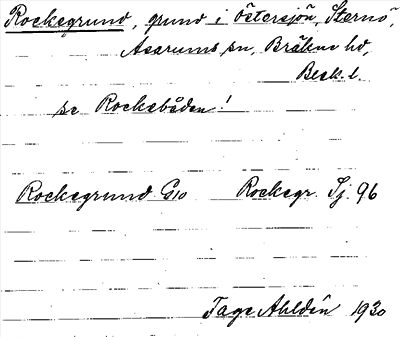 Rockegrund, grund i Östersjön, Sternö,
Asarums sn, Bräkne hd,
Blek. l.
se Rockebåden!
Rockegrund G10 Rockegr. Sj. 96
Tage Ahldén 1930